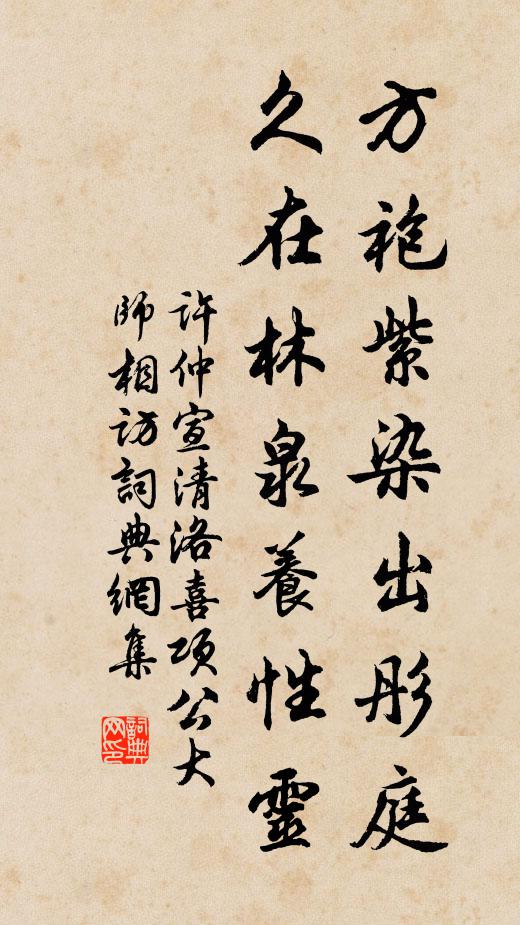 方袍紫染出彤庭
久在林泉養性靈
許仲宣清洛喜項公大
師相訪詞典網集
詞典網印